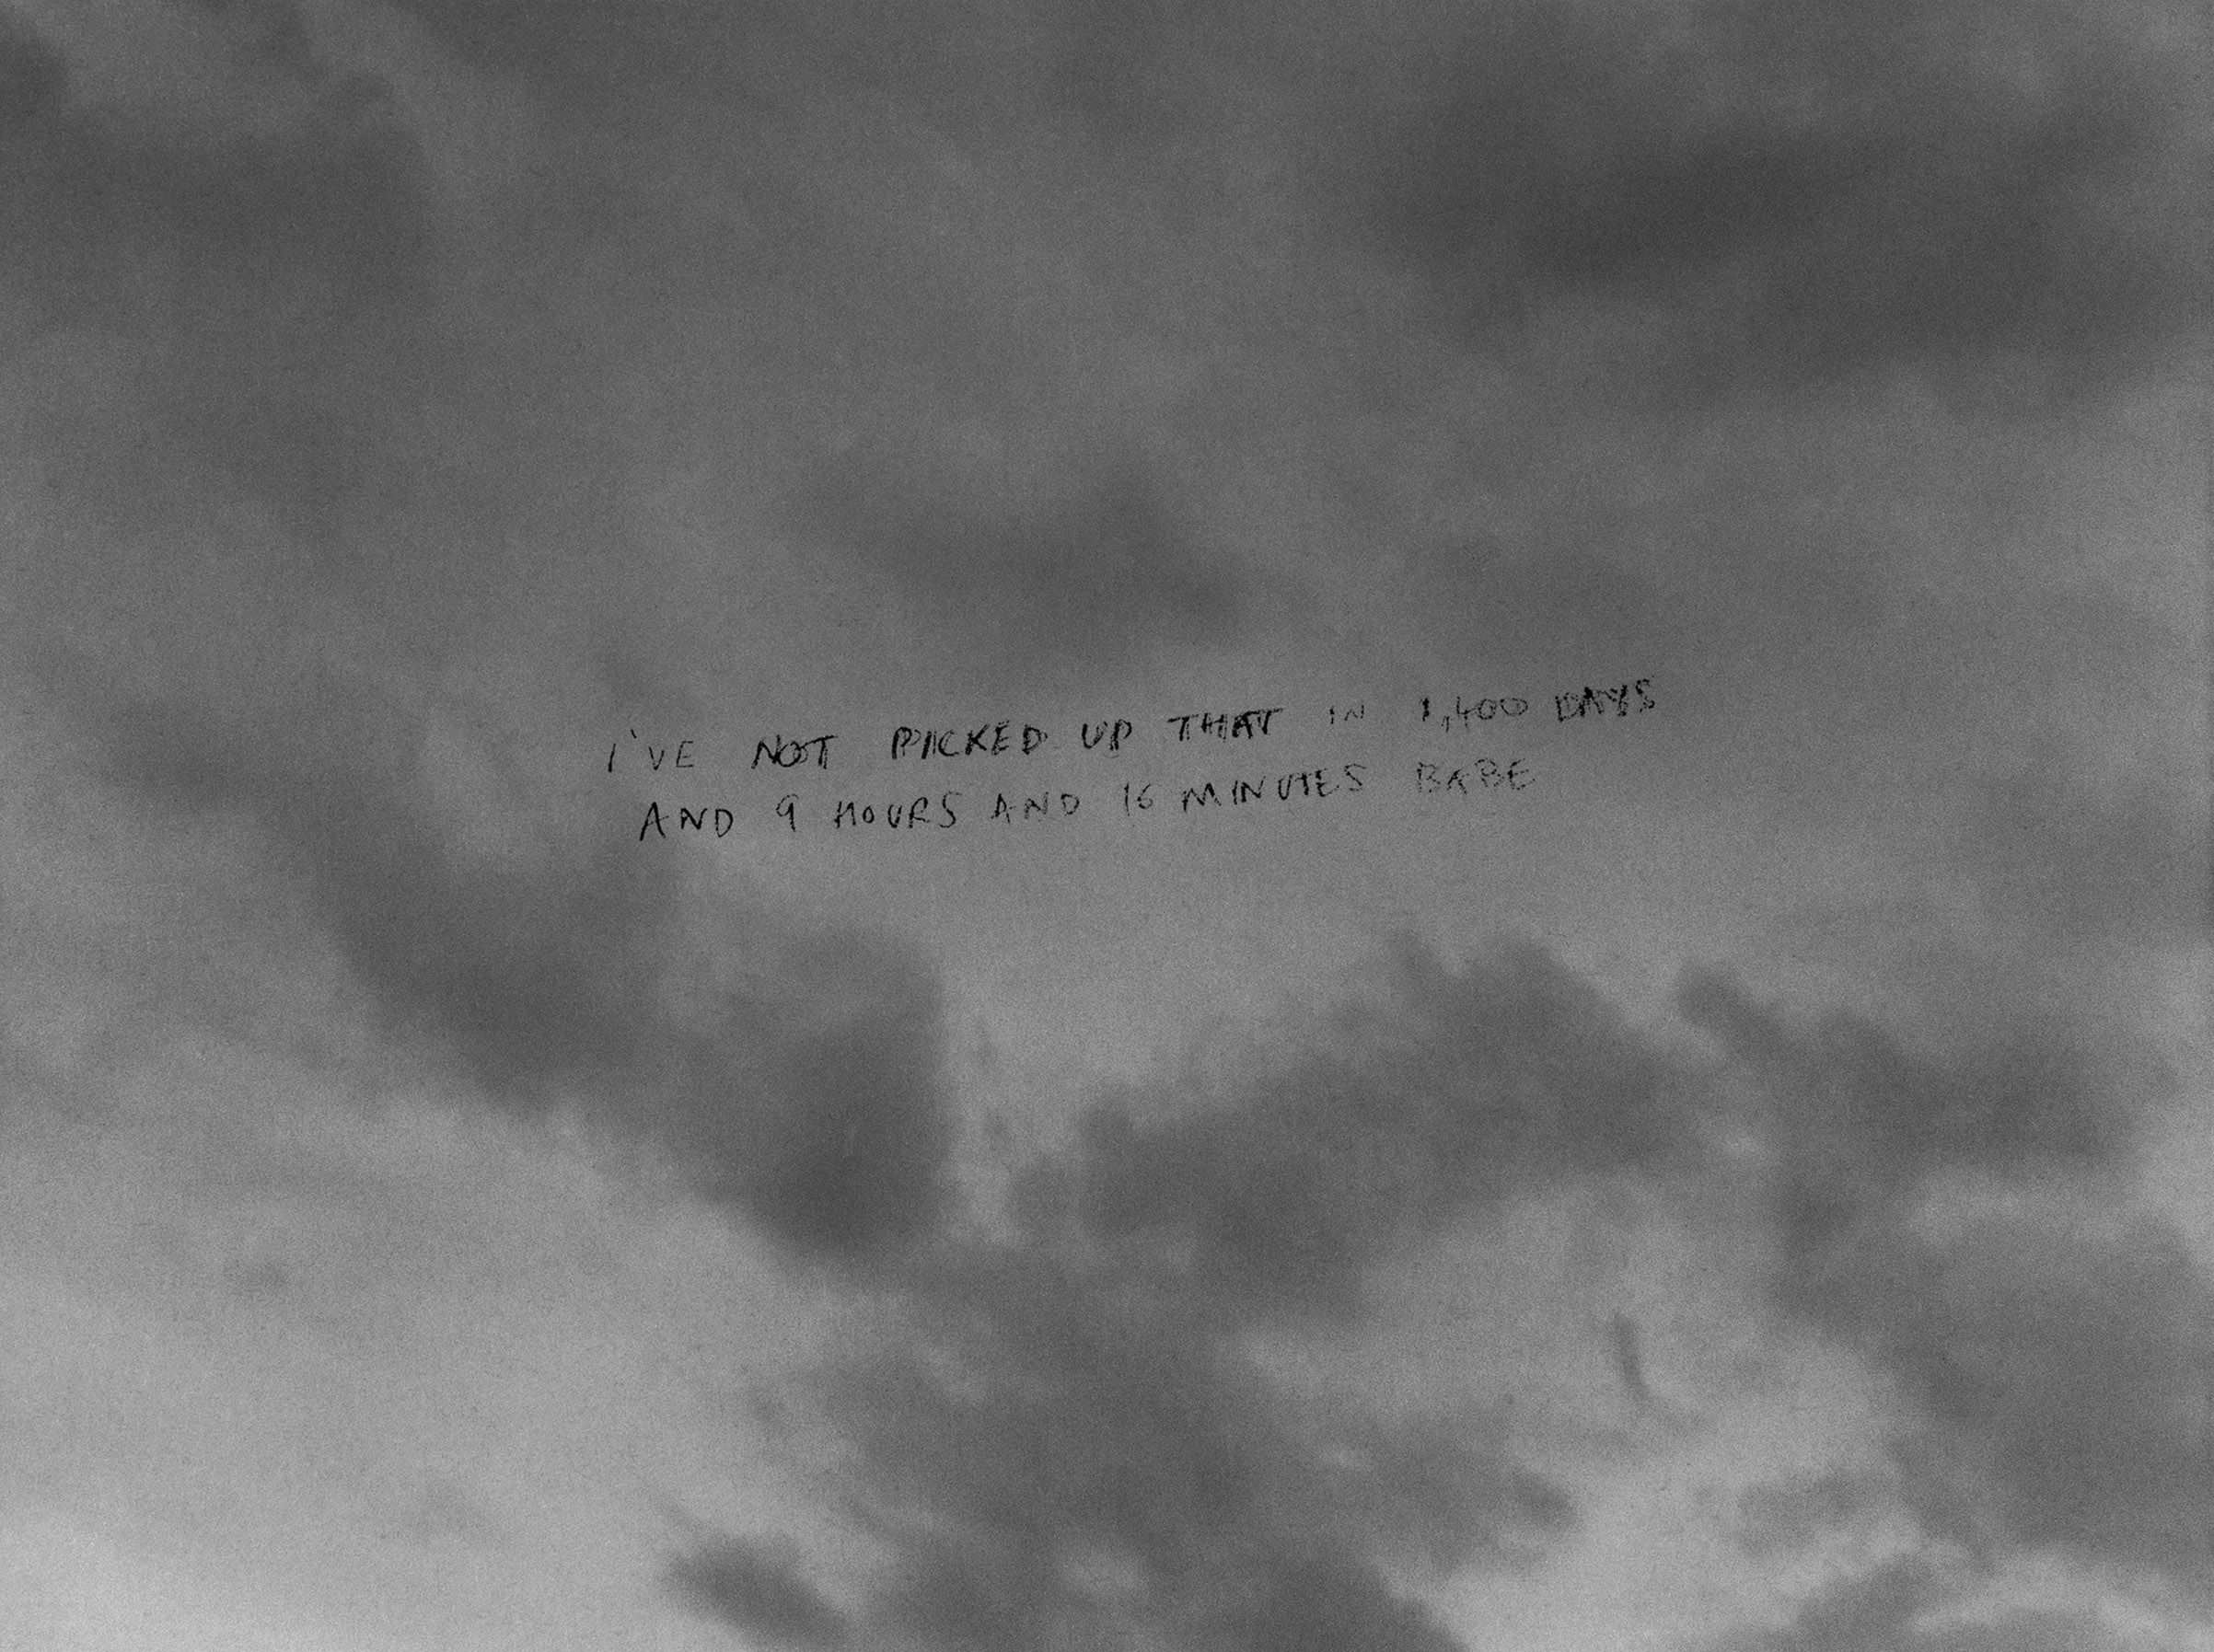 I'VE NOT PICKED UP THAT IN 1,400 DAYS
AND 9 HOURS AND 16 MINUTES BABE